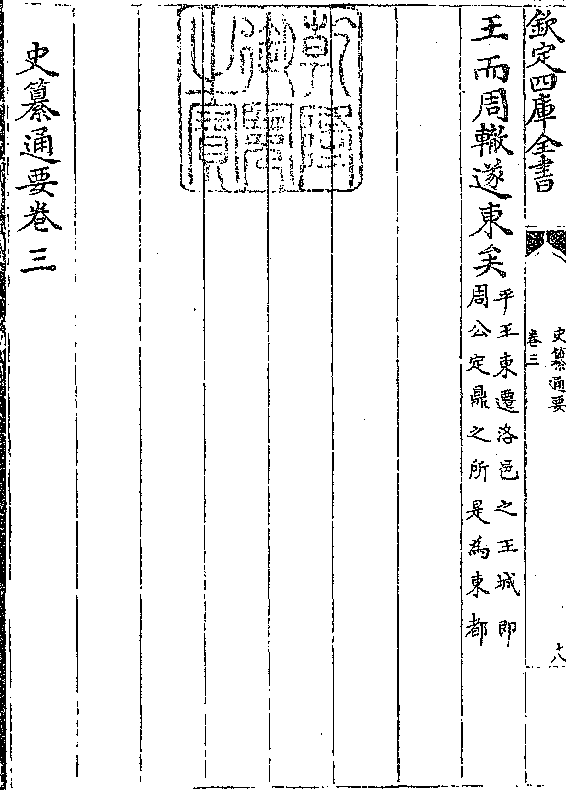 欽定四庫全書
史纂通要
卷三
十八
王而周轍遂東矣
平王東遷洛邑之王城即
周公定鼎之所是為東都
乾隆御覽之寶
史纂通要卷三